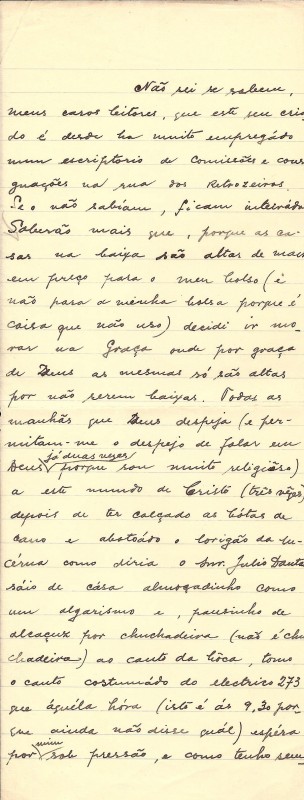 Não sei se sabem,
meus caros leitores, que este seu cria-
do é desde ha muito empregádo
num escriptorio de comissões e cons
gnações na rua dos Retrozeiros.
Se o não sabiam, ficam inteirádos
Saberão mais que, porque as ca-
sas na baixa são altas de mais
em preço para o meu bolso (é
não para a minha bolsa porque é
coisa que não uso) decidi ir mo-
rar na Graça onde por graça
de Deus as mesmas só são altas
por não serem baixas. Todas as
manhãs que Deus despeja (e per-
mitam-me o despejo de falar em
já duas vezes
Deus porque sou muito religiôso)
a este mundo de Cristo (três vêzes)
depois de ter calçado as bótas de
cano e abotoádo o corigão da lu-
cérna como diria o snr. Julio Dantas
sáio de cása almoçadinho como
um algarismo e, pausinho de
alcaçuz por chuchadeira (não é chu
chadeira) ao canto da bôca, tomo
o canto costumádo do electrico 273
que áquéla hóra (isto é ás 9,30 por-
que ainda não disse quál) espéra
mim
por sob pressão, e como tenho sem-